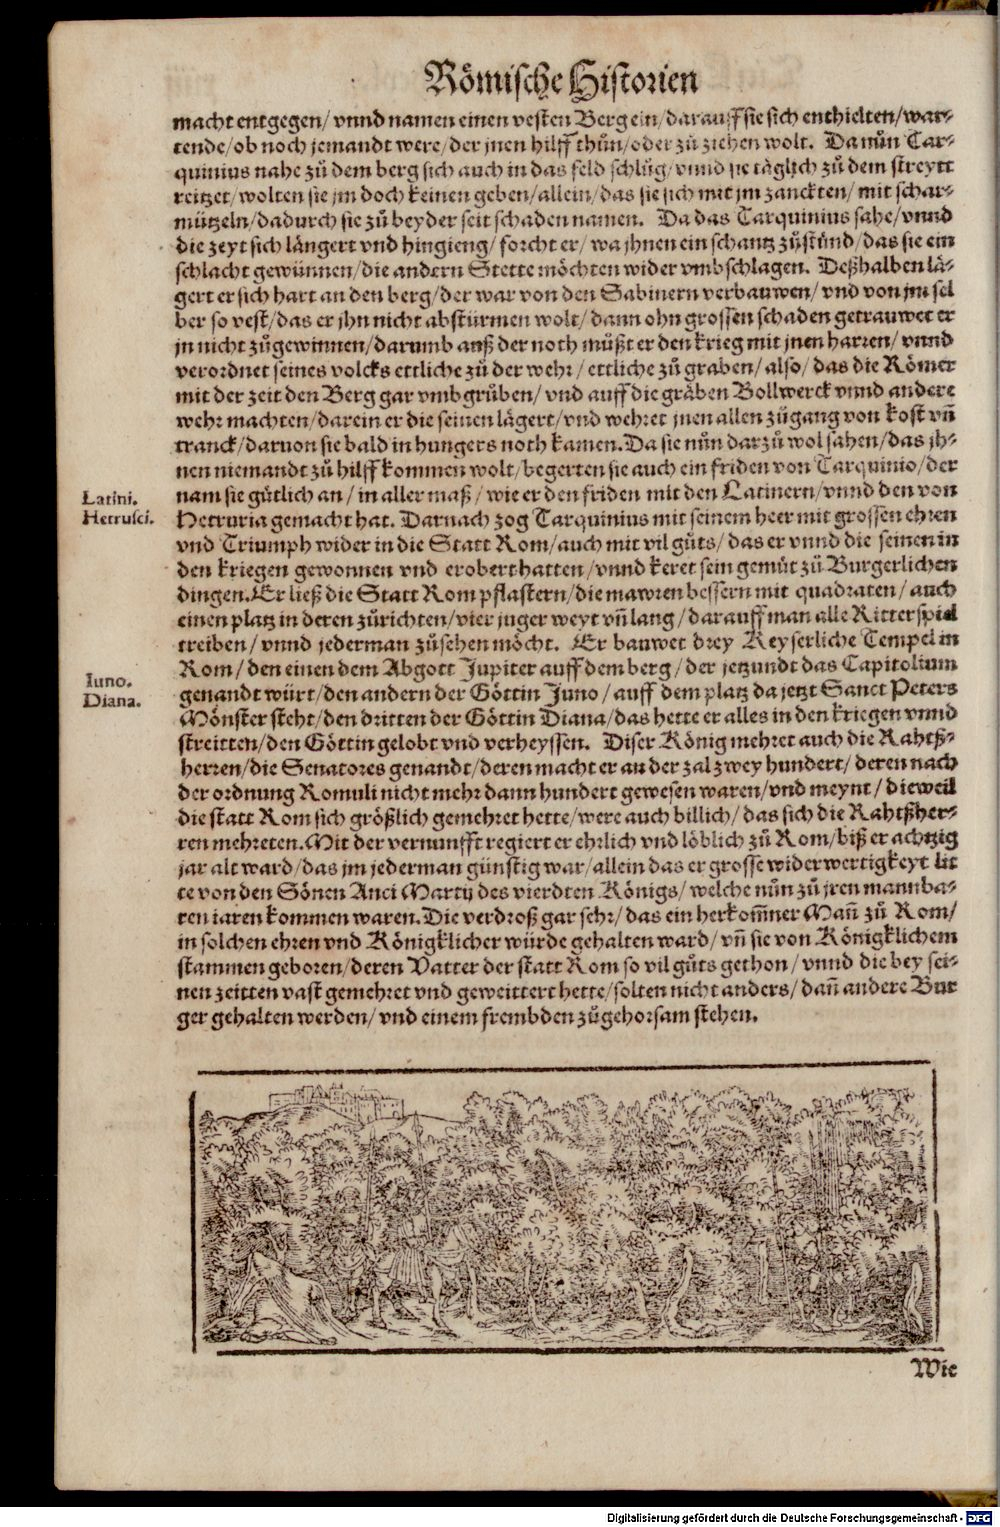 Römische Historien
macht entgegen/ vnnd namen einen vesten Berg ein/ darauff sie sich enthielten/ war-
tende/ ob noch jemandt were/ der jnen hilff thůn/ oder zů ziehen wolt. Da nůn Tar-
quinius nahe zů dem berg sich auch in das feld schlůg/ vnnd sie täglich zů dem streytt
reitzet/ wolten sie jm doch keinen geben/ allein/ das sie sich mit jm zanckten/ mit schar-
mützeln/ dadurch sie zů beyder seit schaden namen. Da das Tarquinius sahe/ vnnd
die zeyt sich längert vnd hingieng/ forcht er/ wa jhnen ein schantz zůstůnd/ das sie ein
schlacht gewünnen/ die andern Stette möchten wider vmbschlagen. Deßhalben lä-
gert er sich hart an den berg/ der war von den Sabinern verbauwen/ vnd von jm sel
ber so vest/ das er jhn nicht abstürmen wolt/ dann ohn grossen schaden getrauwet er
jn nicht zůgewinnen/ darumb auß der noth můßt er den krieg mit jnen harren/ vnnd
verordnet seines volcks ettliche zů der wehr/ ettliche zů graben/ also/ das die Römer
mit der zeit den Berg gar vmbgrůben/ vnd auff die gräben Bollwerck vnnd andere
wehr machten/ darein er die seinen lägert/ vnd wehret jnen allen zůgang von kost vn̄
tranck/ daruon sie bald in hungers noth kamen. Da sie nůn darzů wol sahen/ das jh-
nen niemandt zů hilff kommen wolt/ begerten sie auch ein friden von Tarquinio/ der
nam sie gůtlich an/ in aller maß/ wie er den friden mit den Latinern/ vnnd den von
Hetruria gemacht hat. Darnach zog Tarquinius mit seinem heer mit grossen ehren
vnd Triumph wider in die Statt Rom/ auch mit vil gůts/ das er vnnd die seinen in
den kriegen gewonnen vnd erobert hatten/ vnnd keret sein gemüt zů Burgerlichen
dingen. Er ließ die Statt Rom pflastern/ die mawren bessern mit quadraten/ auch
einen platz in deren zůrichten/ vier juger weyt vn̄ lang/ darauff man alle Ritterspiel
treiben/ vnnd jederman zůsehen möcht. Er bauwet drey Keyserliche Tempel in
Rom/ den einen dem Abgott Jupiter auff dem berg/ der jetzundt das Capitolium
genandt würt/ den andern der Göttin Juno/ auff dem platz da jetzt Sanct Peters
Mönster steht/ den dritten der Göttin Diana/ das hette er alles in den kriegen vnnd
streitten/ den Göttin gelobt vnd verheyssen. Diser König mehret auch die Rahtß-
herren/ die Senatores genandt/ deren macht er an der zal zwey hundert/ deren nach
der ordnung Romuli nicht mehr dann hundert gewesen waren/ vnd meynt/ dieweil
die statt Rom sich größlich gemehret hette/ were auch billich/ das sich die Rahtßher-
ren mehreten. Mit der vernunfft regiert er ehrlich vnd löblich zů Rom/ biß er achtzig
jar alt ward/ das jm jederman günstig war/ allein das er grosse widerwertigkeyt lit
te von den Sönen Anci Martij des vierdten Königs/ welche nůn zů jren mannba-
ren iaren kommen waren. Die verdroß gar sehr/ das ein herkom̄ner Man̄ zů Rom/
in solchen ehren vnd Königklicher würde gehalten ward/ vn̄ sie von Königklichem
stammen geboren/ deren Vatter der statt Rom so vil gůts gethon/ vnnd die bey sei-
nen zeitten vast gemehret vnd geweittert hette/ solten nicht anders/ dan̄ andere Bur
ger gehalten werden/ vnd einem frembden zůgehorsam stehen.
Latini.
Hetrusci.
Iuno.
Diana.
Wie
Digitalisierung gefördert durch die Deutsche Forschungsgemeinschaft - DFG